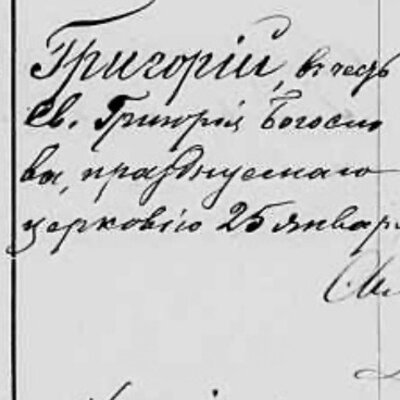 Григорій, въ честь
Св. Григорія Богосло
ва, празднуемаго
церковію 25 январ